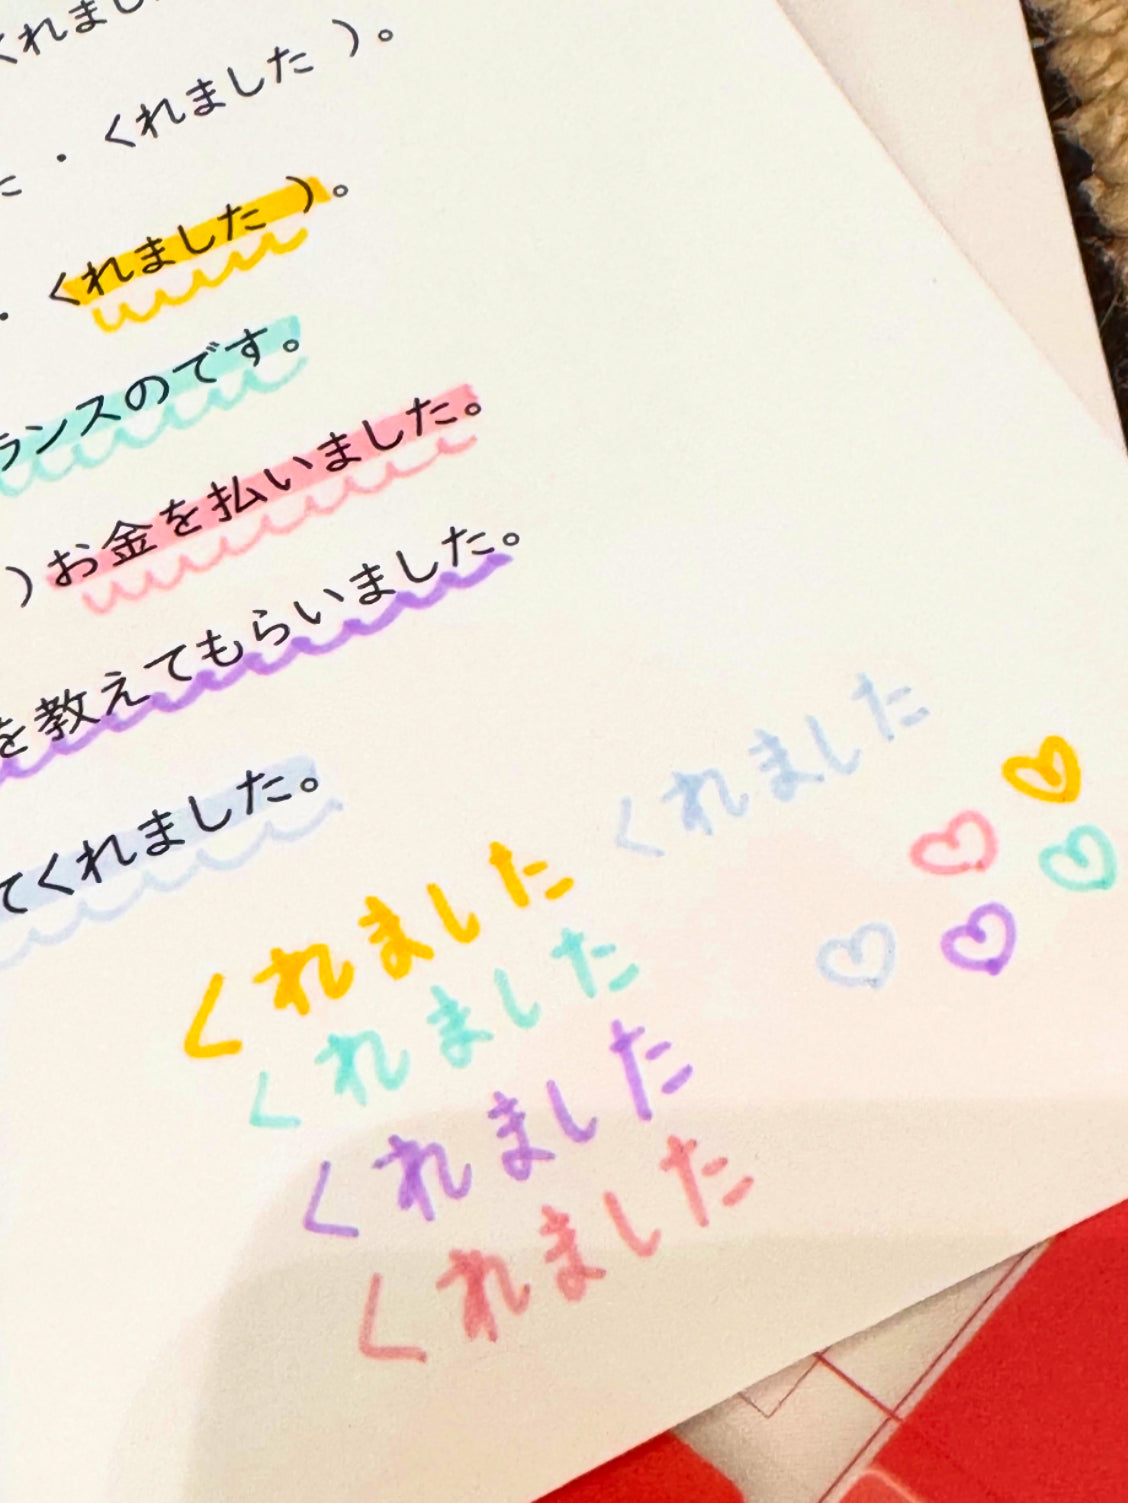 くれまし
・くれました )。
・くれました )。
ランスのです。
)お金を払いました。
を教えてもらいました。
てくれました。
くれました
くれました
くれました
くれました
くれました